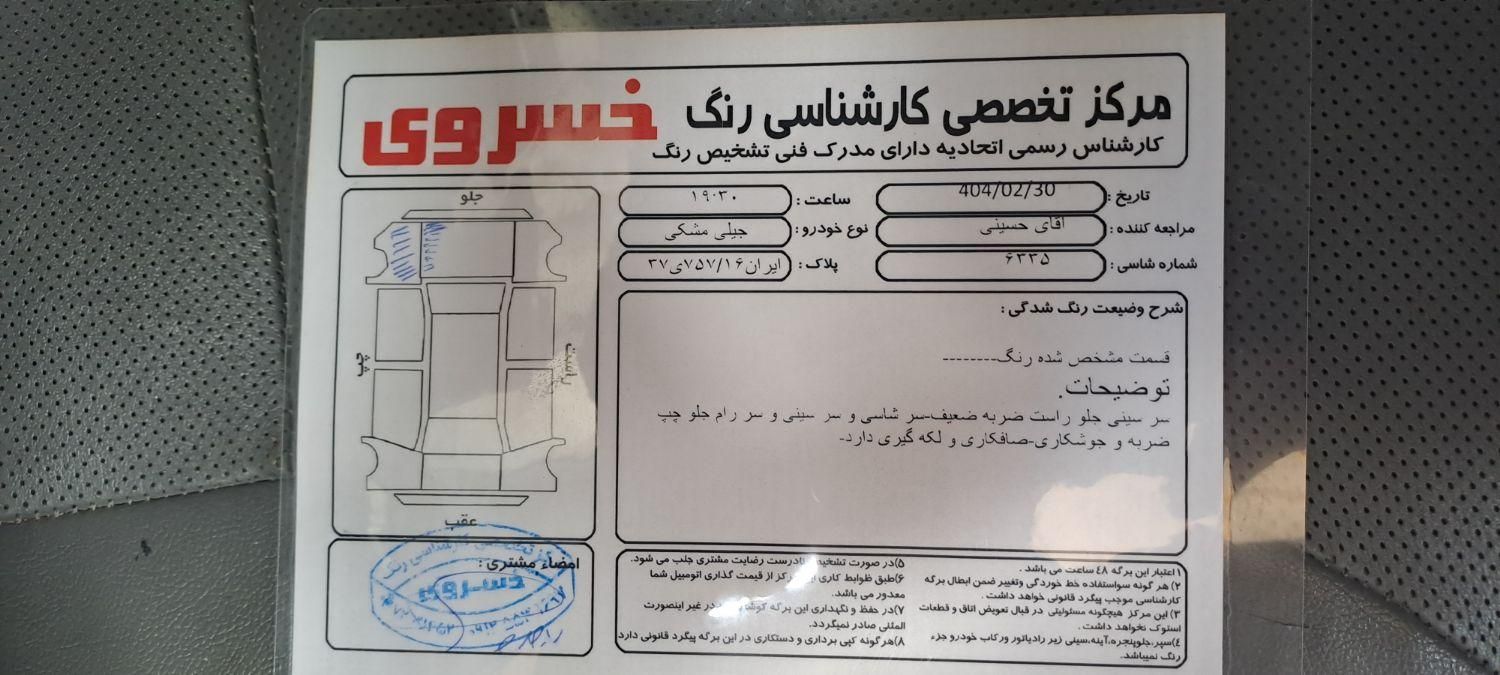 مرکز تخصصی کارشناسی رنگ خسروی
کارشناس رسمی اتحادیه دارای مدرک فنی تشخیص رنگ
تاریخ : 404/02/30
ساعت : ۱۹:۳۰
مراجعه کننده : آقای حسینی
نوع خودرو : جیلی مشکی
شماره شاسی : ۶۳۳۵
پلاک : ایران۷۵۷/۱۶ی۳۷
جلو
چپ
راست
عقب
شرح وضیعت رنگ شدگی :
قسمت مشخص شده رنگ--------
توضیحات.
سر سینی جلو راست ضربه ضعیف-سر شاسی و سر سینی و سر رام جلو چپ
ضربه و جوشکاری-صافکاری و لکه گیری دارد-
امضاء مشتری :
مرکز تخصصی کارشناسی رنگ
خسروی
۱)اعتبار این برگه ٤٨ ساعت می باشد .
۲)هر گونه سواستفاده خط خوردگی وتغییر ضمن ابطال برگه
کارشناسی موجب پیگرد قانونی خواهد داشت .
۳)این مرکز هیچگونه مسئولیتی در قبال تعویض اتاق و قطعات
استوک نخواهد داشت .
٤)سپر،جلوپنجره،آینه،سینی زیر رادیاتور ورکاب خودرو جزء
رنگ نمیباشد.
۵)در صورت تشخیص نادرست رضایت مشتری جلب می شود.
۶)طبق ظوابط کاری این مرکز از قیمت گذاری اتومبیل شما
معدور می باشد.
۷)در حفظ و نگهداری این برگه در غیر اینصورت
المثنی صادر نمیگردد.
۸)هرگونه کپی برداری و دستکاری در این برگه پیگرد قانونی دارد